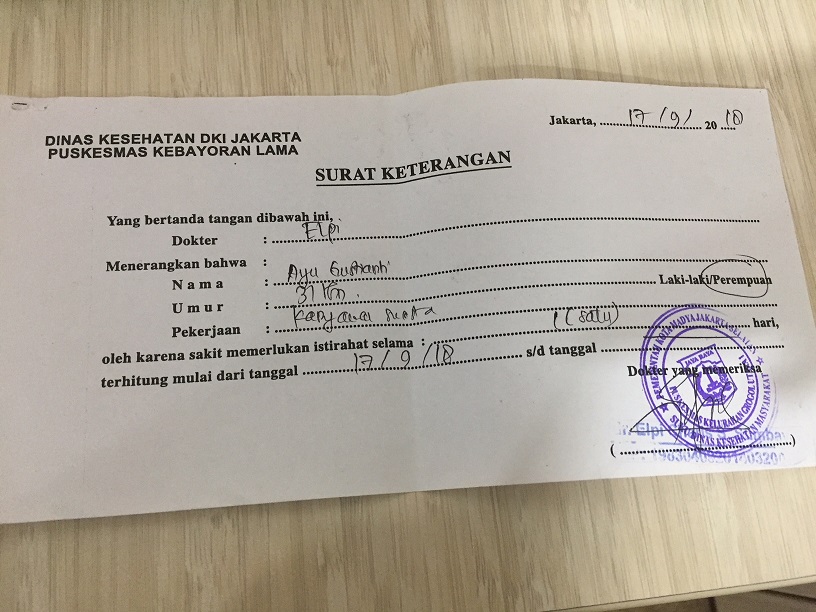 DINAS KESEHATAN DKI JAKARTA
PUSKESMAS KEBAYORAN LAMA
Jakarta, 17/9/ 20 18
SURAT KETERANGAN
Yang bertanda tangan dibawah ini,
Dokter : Elpi
Menerangkan bahwa :
N a m a : Ayu Laki-laki/Perempuan
U m u r : 31 thn.
Pekerjaan : karyawan swasta
oleh karena sakit memerlukan istirahat selama : 1 (satu) hari,
terhitung mulai dari tanggal 17/9/18 s/d tanggal
Dokter yang memeriksa
PEMERINTAH KOTAMADYA JAKARTA
KELURAHAN GROGOL UTARA I
KESEHATAN MASYARAKAT
( )